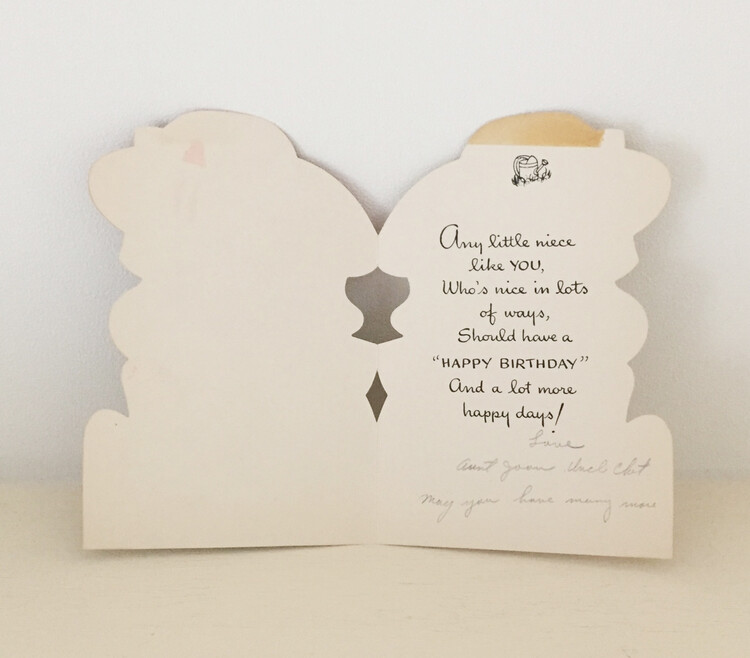 Any little niece
like YOU,
Who's nice in lots
of ways,
Should have a
"HAPPY BIRTHDAY"
And a lot more
happy days!
Love
Aunt Uncle Chet
May you have many more